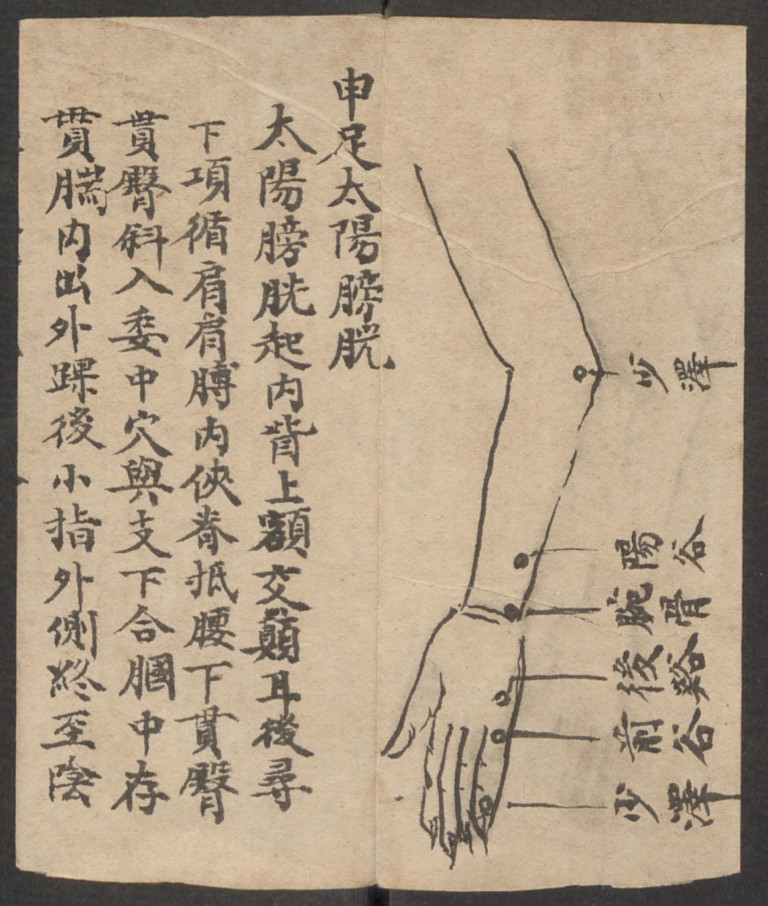 少澤
陽谷
腕骨
後谿
前谷
少澤
申足太陽膀胱
太陽膀胱起内眥上額交顛耳後尋
下項循肩肩膊内俠脊抵腰下貫臀
貫臀斜入委中穴與支下合膕中存
貫腨内出外踝後小指外側終至陰